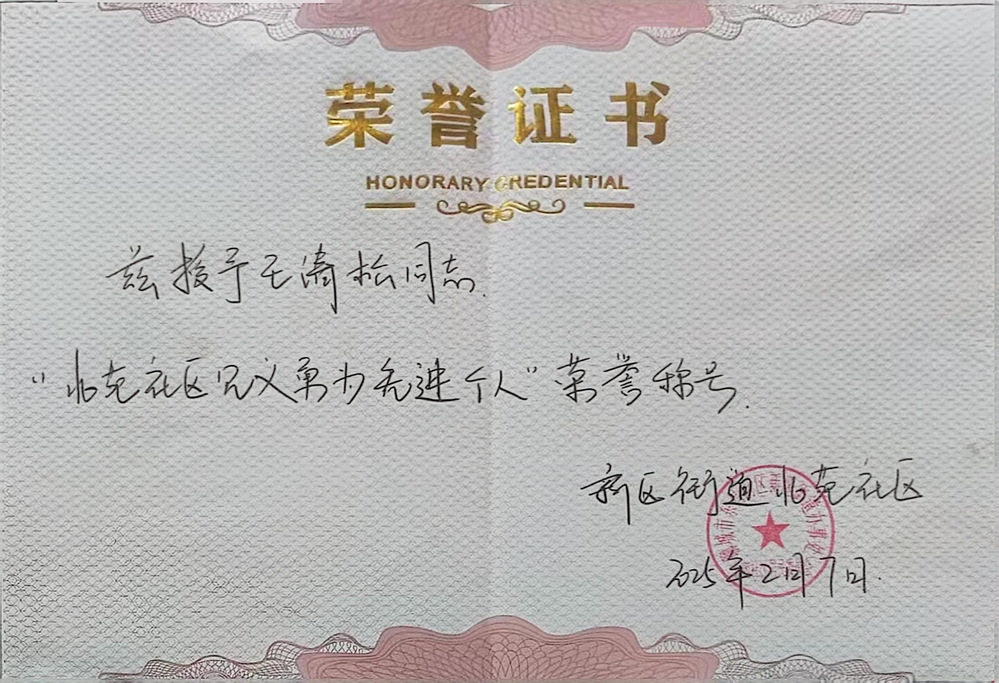 荣誉证书
HONORARY CREDENTIAL
兹授予王清松同志
“北苑社区见义勇为先进个人”荣誉称号.
新区街道北苑社区
2025年2月7日.